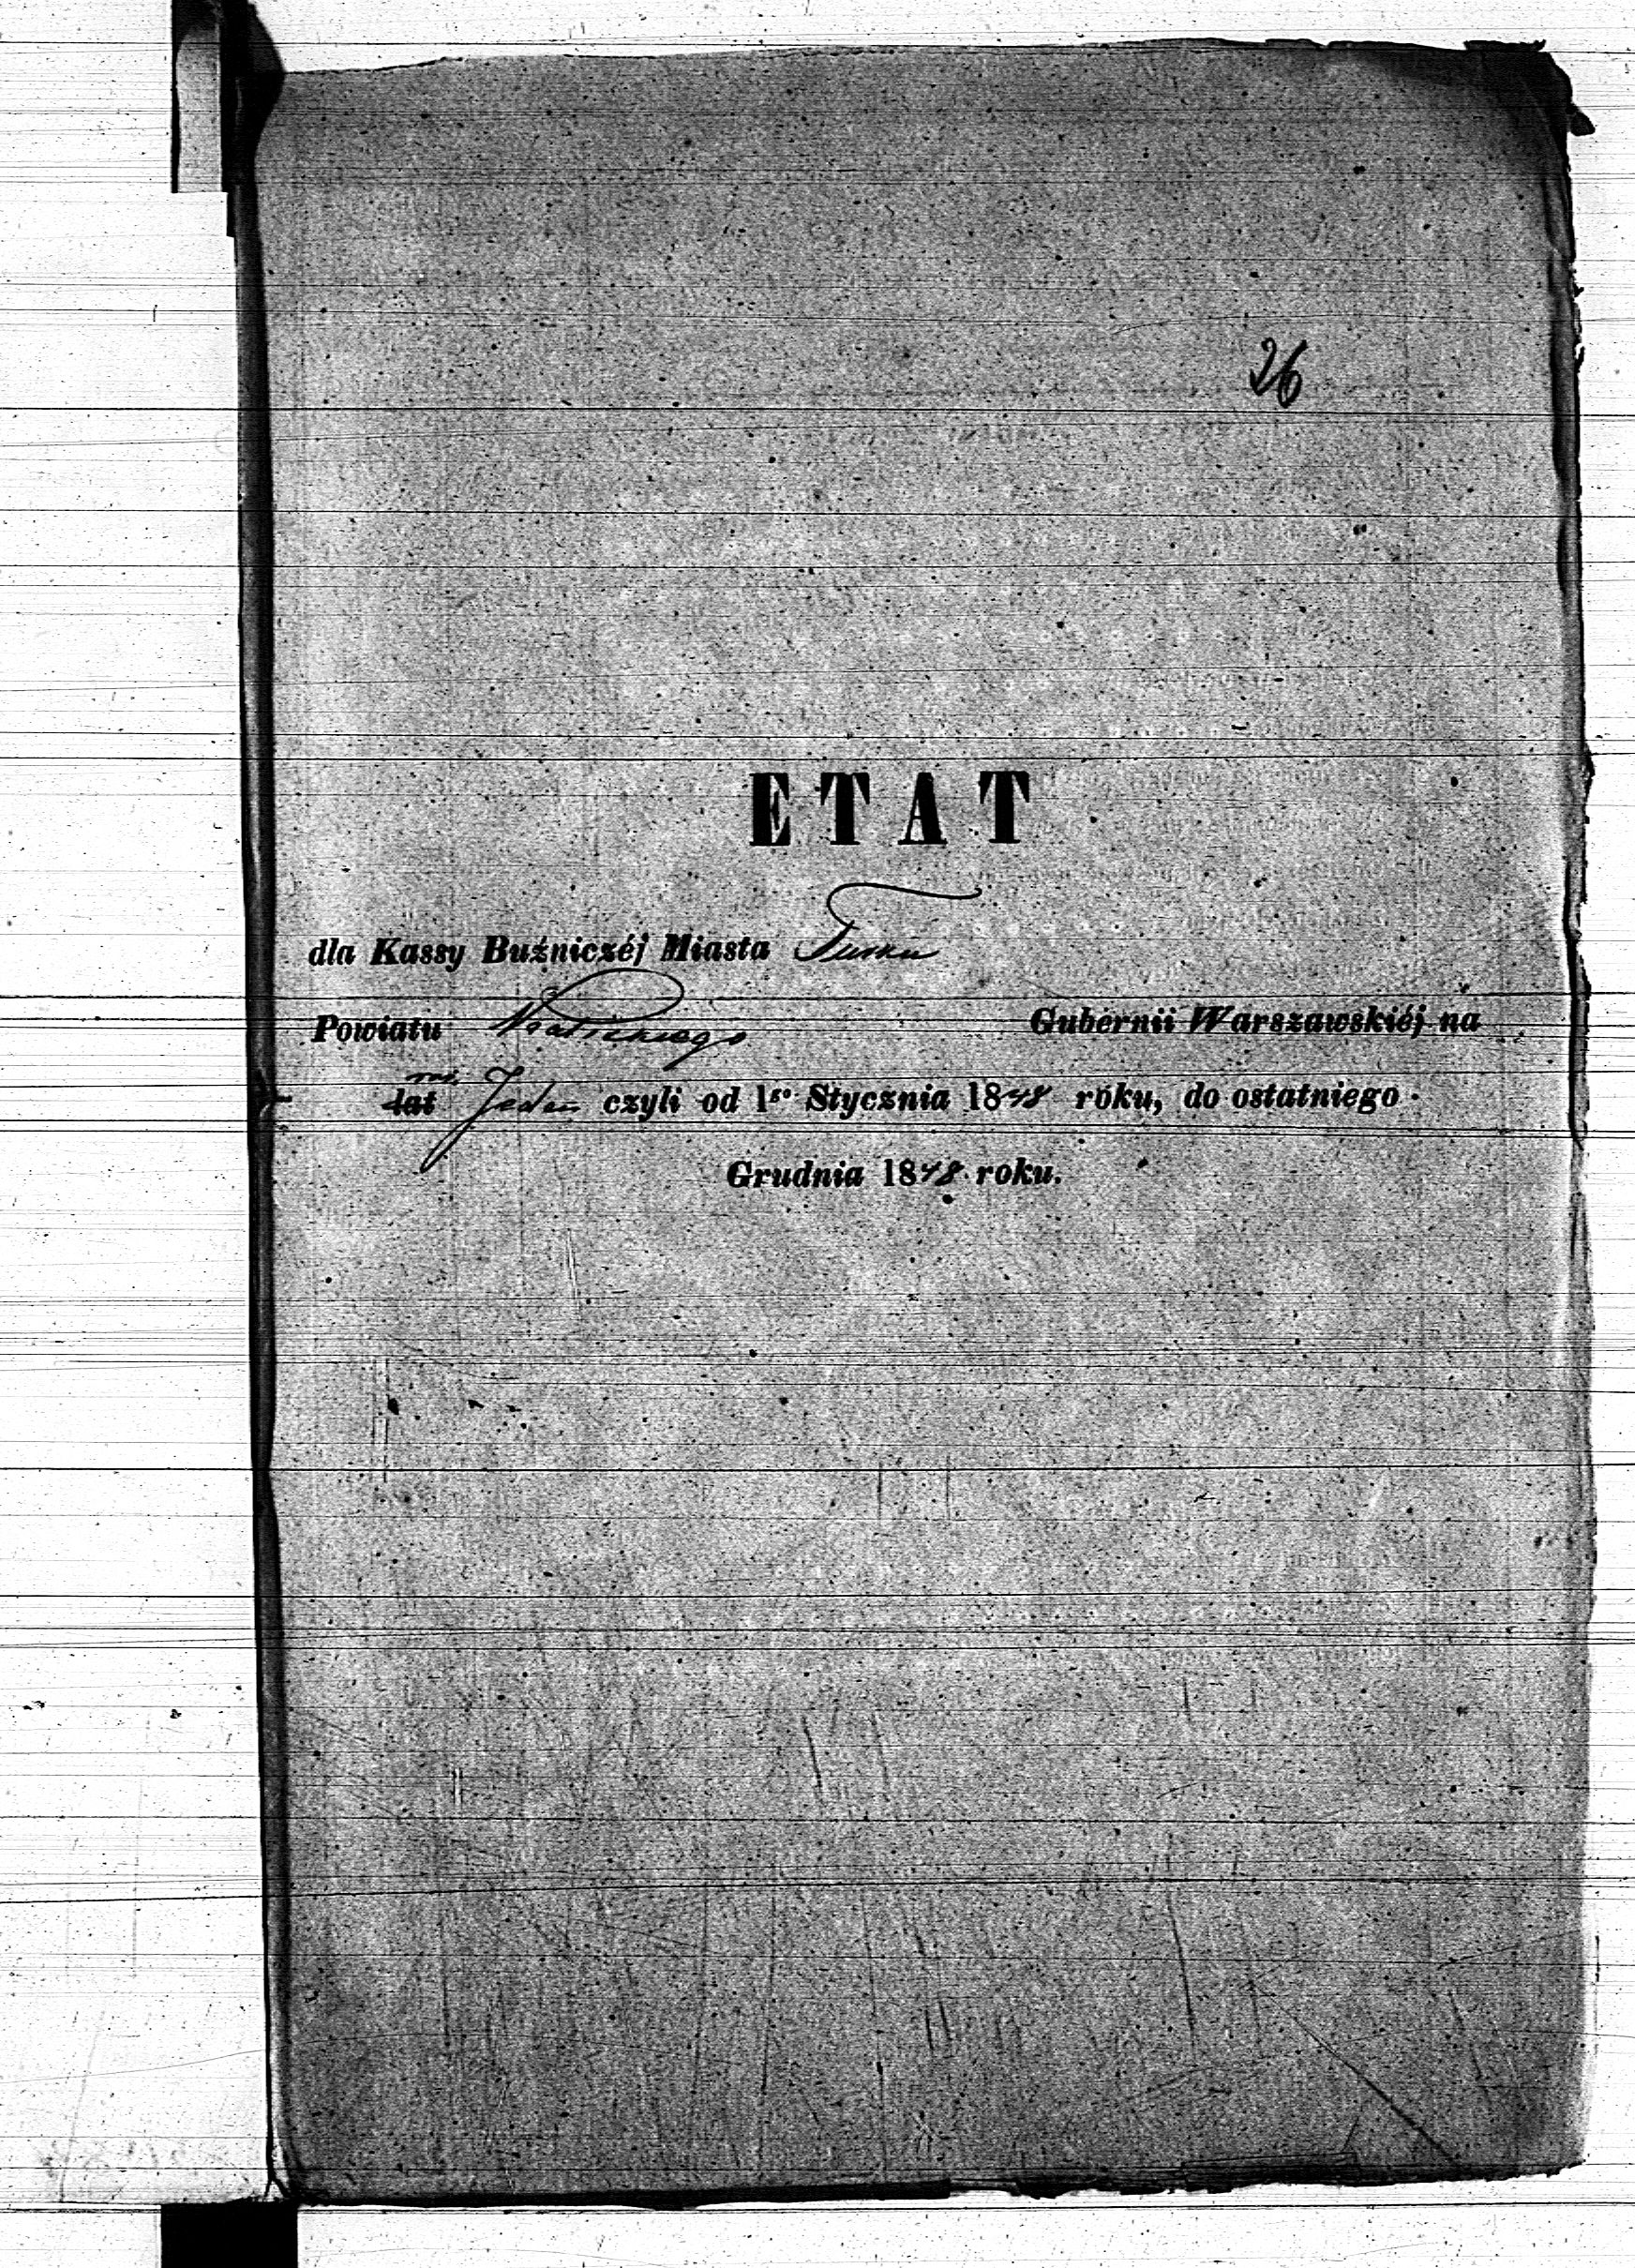 26
ETAT
dla Kassy Buźniczéj Miasta Turku
Powiatu Kaliskiego Gubernii Warszawskiéj na
lat Jeden czyli od 1go Stycznia 1848 roku, do ostatniego
Grudnia 1848 roku.